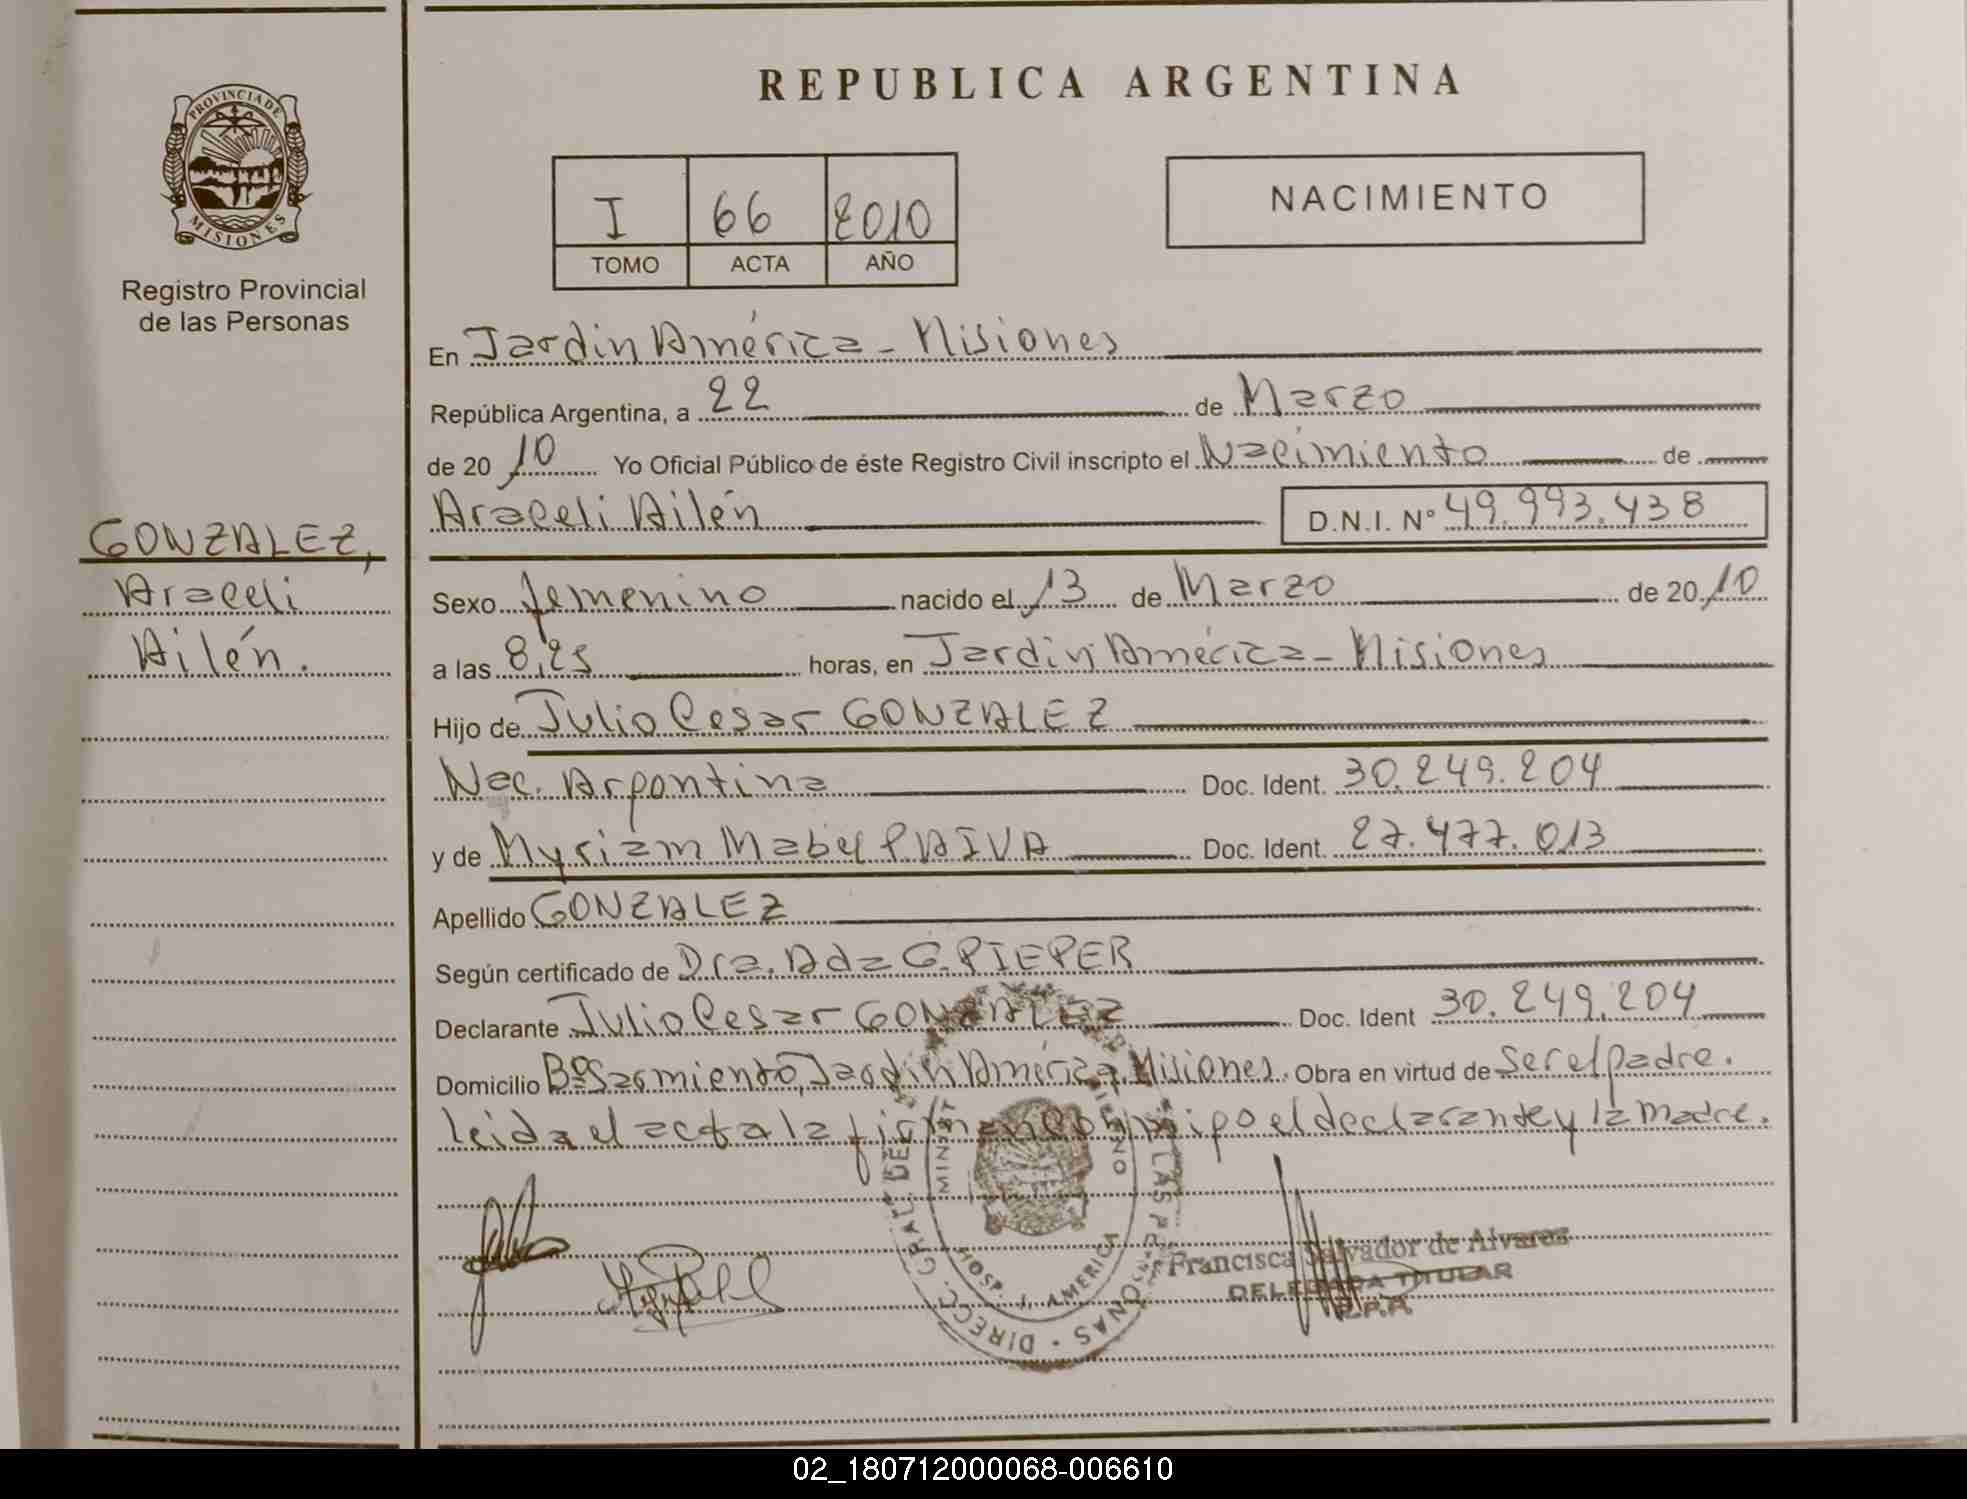 REPUBLICA ARGENTINA
PROVINCIA DE
MISIONES
Registro Provincial
de las Personas
I 66 2010
TOMO ACTA AÑO
NACIMIENTO
En Jardin América - Misiones
República Argentina, a 22 de Marzo
de 2010 Yo Oficial Público de éste Registro Civil inscripto el Nacimiento de
Araceli Ailén D.N.I. Nº 49.993.438
GONZALEZ,
Araceli
Ailén.
Sexo femenino nacido el 13 de Marzo de 2010
a las 8,25 horas, en Jardin América - Misiones
Hijo de Julio Cesar GONZALEZ
Nac. Argentina Doc. Ident. 30.249.204
y de Myriam Mabel PAIVA Doc. Ident. 27.477.013
Apellido GONZALEZ
Según certificado de Dra. Ada G. PIEPER
Declarante Julio Cesar GONZALEZ Doc. Ident 30.249.204
Domicilio Bº Sarmiento, Jardin América, Misiones. Obra en virtud de ser el padre.
leida el acta la firman conmigo el declarante y la madre.
HOSP. J. AMERICA
Francisca Salvador de Alvarez
DELEGADA TITULAR
R.P.P.
02_180712000068-006610